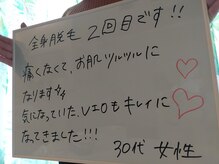 全身脱毛 2回目です!!
痛くなくて、お肌ツルツルに
なります
気になっていた、VIOもキレイに
なってきました!!!
30代 女性